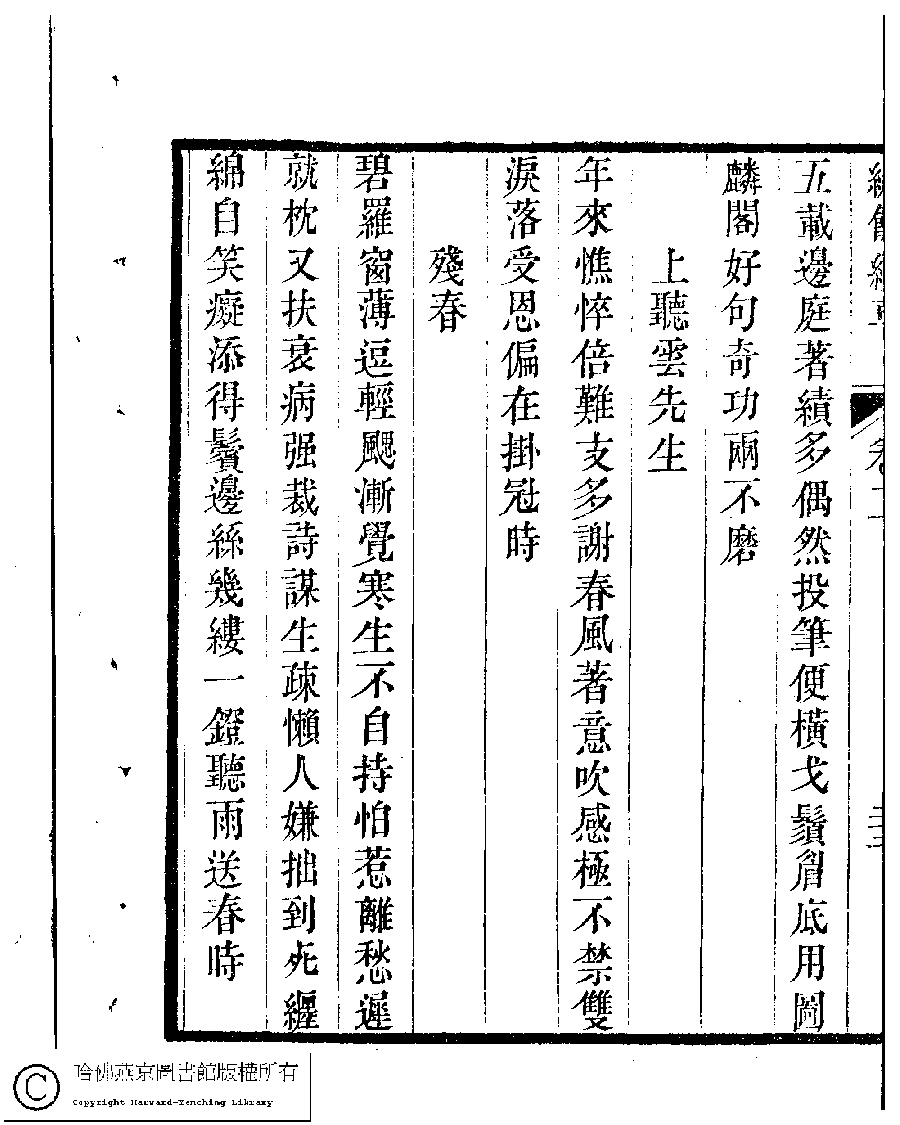 五載邊庭著績多偶然投筆便橫戈鬚眉底用圖
麟閣好句奇功兩不磨
上聽雲先生
年來憔悴倍難支多謝春風著意吹感極不禁雙
淚落受恩偏在掛冠時
殘春
碧羅窗薄逗輕颸漸覺寒生不自持怕惹離愁遲
就枕又扶衰病强裁詩謀生疎懶人嫌拙到死纏
綿自笑癡添得鬢邊絲幾縷一鐙聽雨送春時
哈佛燕京圖書館版權所有
Copyright Harvard-Yenching Library